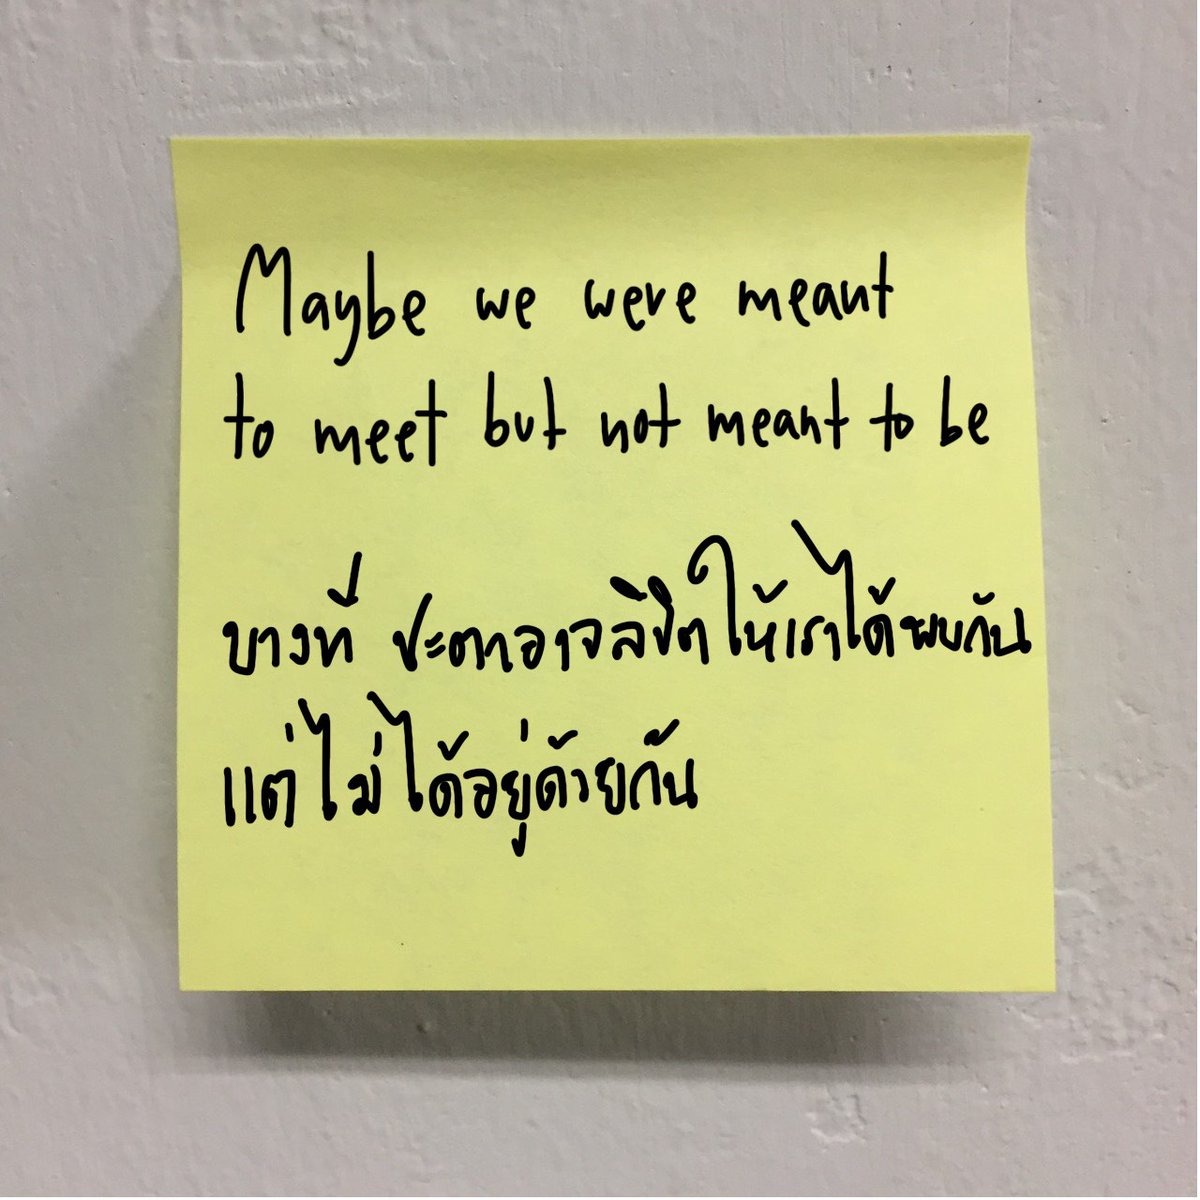 Maybe we were meant
to meet but not meant to be
บางที ชะตาอาจลิขิตให้เราได้พบกัน
แต่ไม่ได้อยู่ด้วยกัน